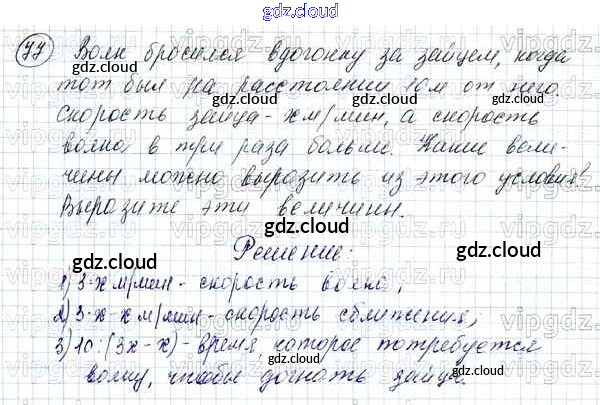 gdz.cloud
77 Волк бросился вдогонку за зайцем, когда
тот был на расстоянии 10 м от него.
Скорость зайца - x м/мин, а скорость
волка в три раза больше. Какие вели-
чины можно выразить из этого условия?
Выразите эти величины.
Решение:
1) 3·x м/мин - скорость волка;
2) 3·x - x м/мин - скорость сближения;
3) 10:(3x-x) - время, которое потребуется
волку, чтобы догнать зайца.